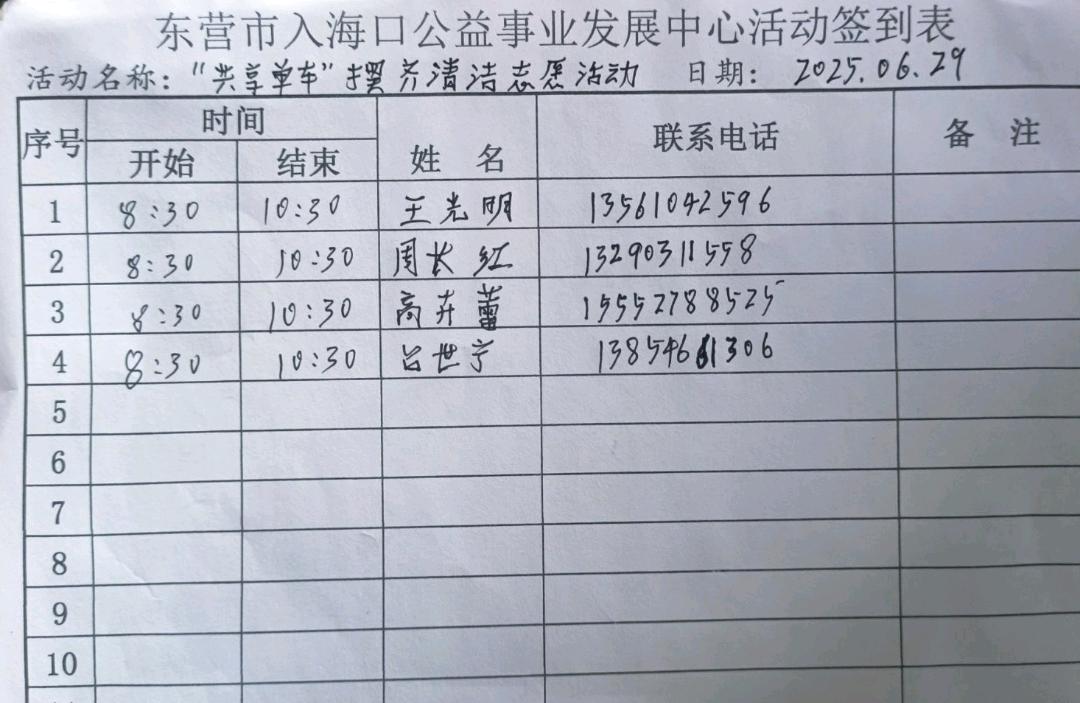 东营市入海口公益事业发展中心活动签到表
活动名称：“共享单车”摆齐清洁志愿活动 日期：2025.06.29
序号 时间 姓名 联系电话 备注
开始 结束
1 8:30 10:30 王光明 13561042596
2 8:30 10:30 周长红 13290311558
3 8:30 10:30 高卉蕾 15552788525
4 8:30 10:30 吕世宁 13854661306
5
6
7
8
9
10